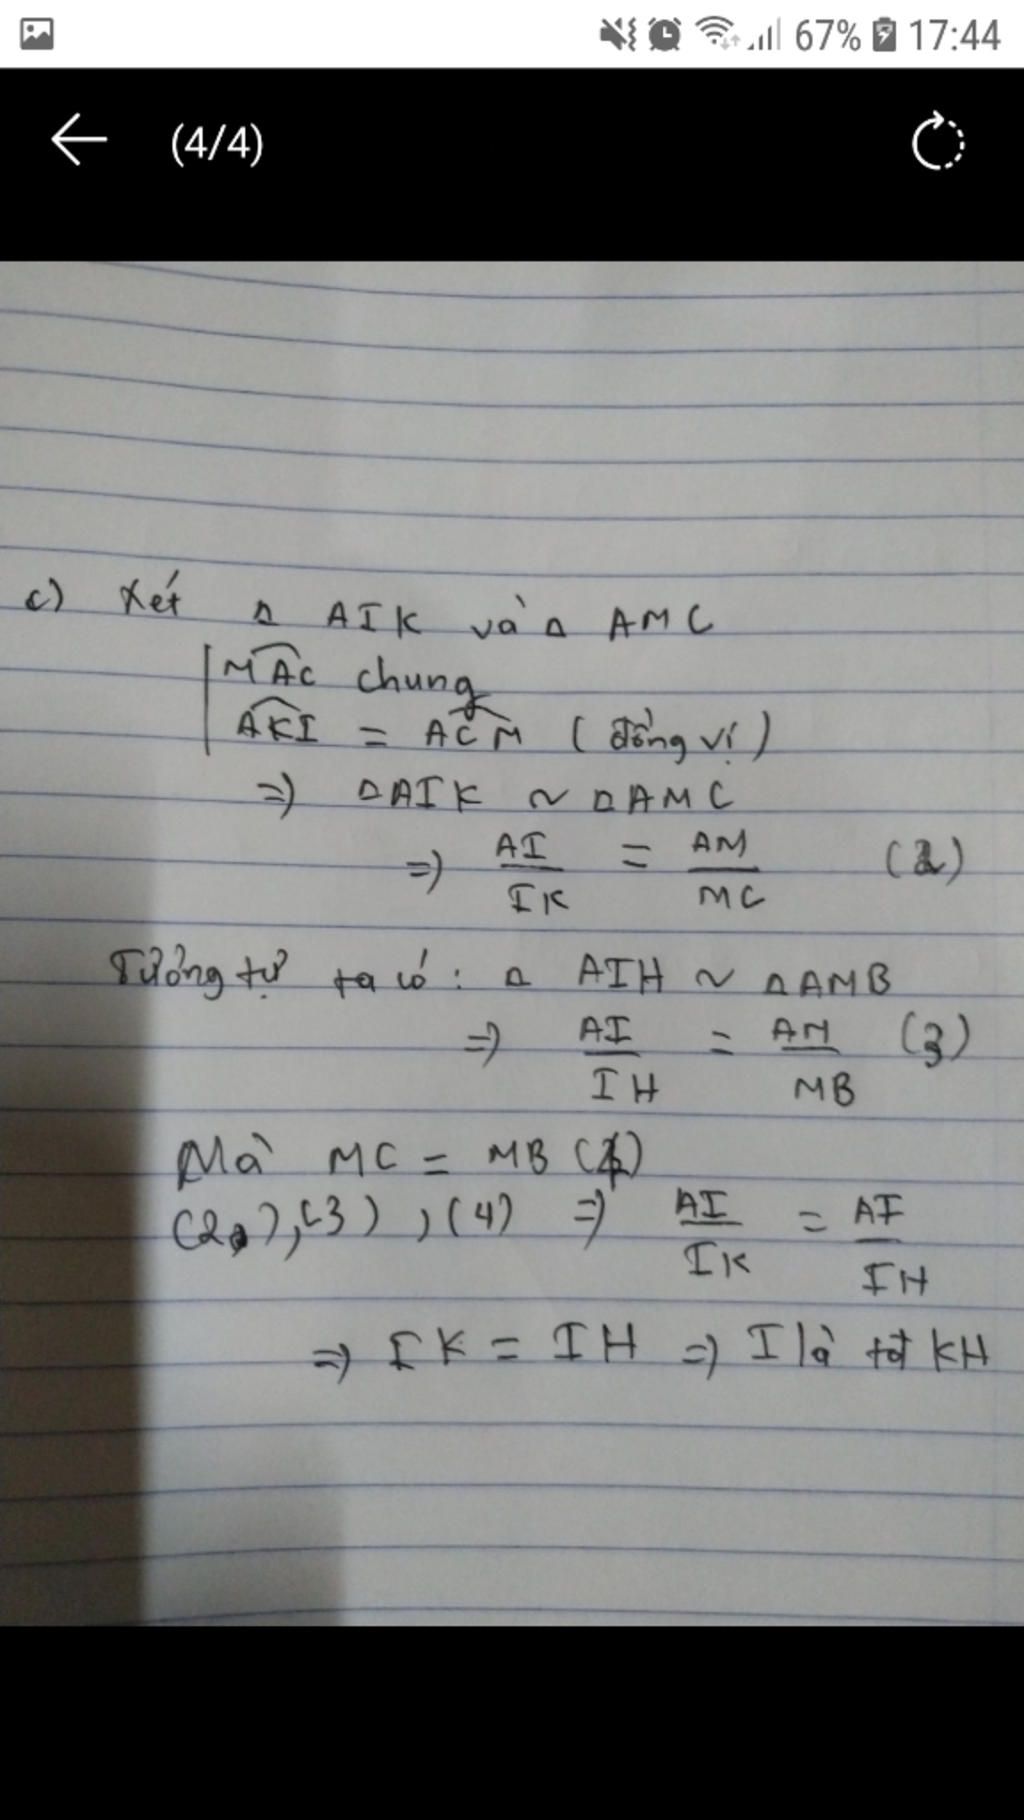 67% 17:44
(4/4)
c) Xét △ AIK và △ AMC
MAC chung
AKI = ACM ( đồng vị )
=) △AIK ~ △AMC
=) AI/IK = AM/MC (2)
Tương tự ta có : △ AIH ~ △AMB
=) AI/IH = AM/MB (3)
Mà MC = MB (4)
(2),(3), (4) =) AI/IK = AI/IH
=) IK = IH =) I là tđ KH